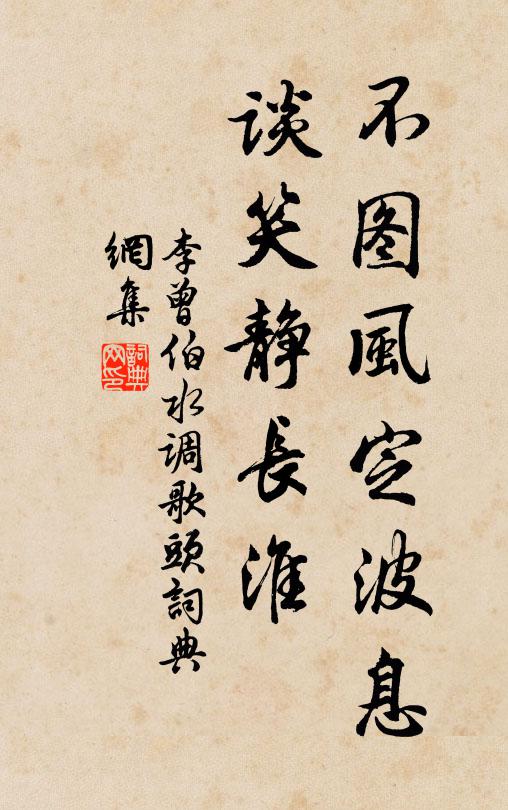 不图風定波息
談笑静長淮
李曾伯水调歌頭詞典
網集
詞典
网印